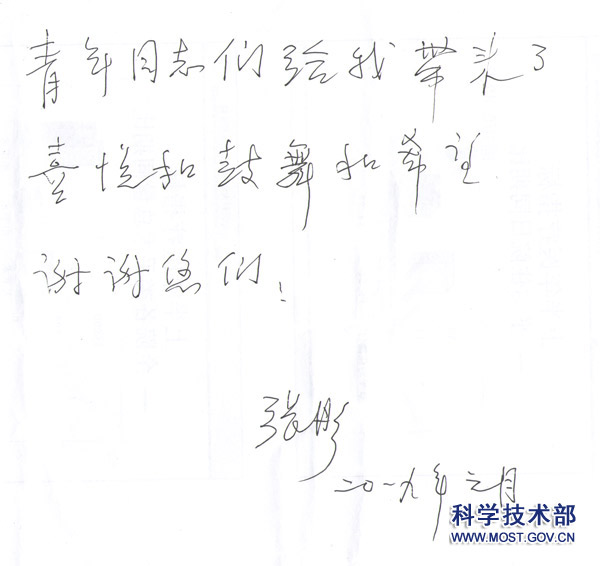 青年同志们给我带来了
喜悦和鼓舞和希望
谢谢您们！
张彤
二〇一九年元月
科学技术部
WWW.MOST.GOV.CN